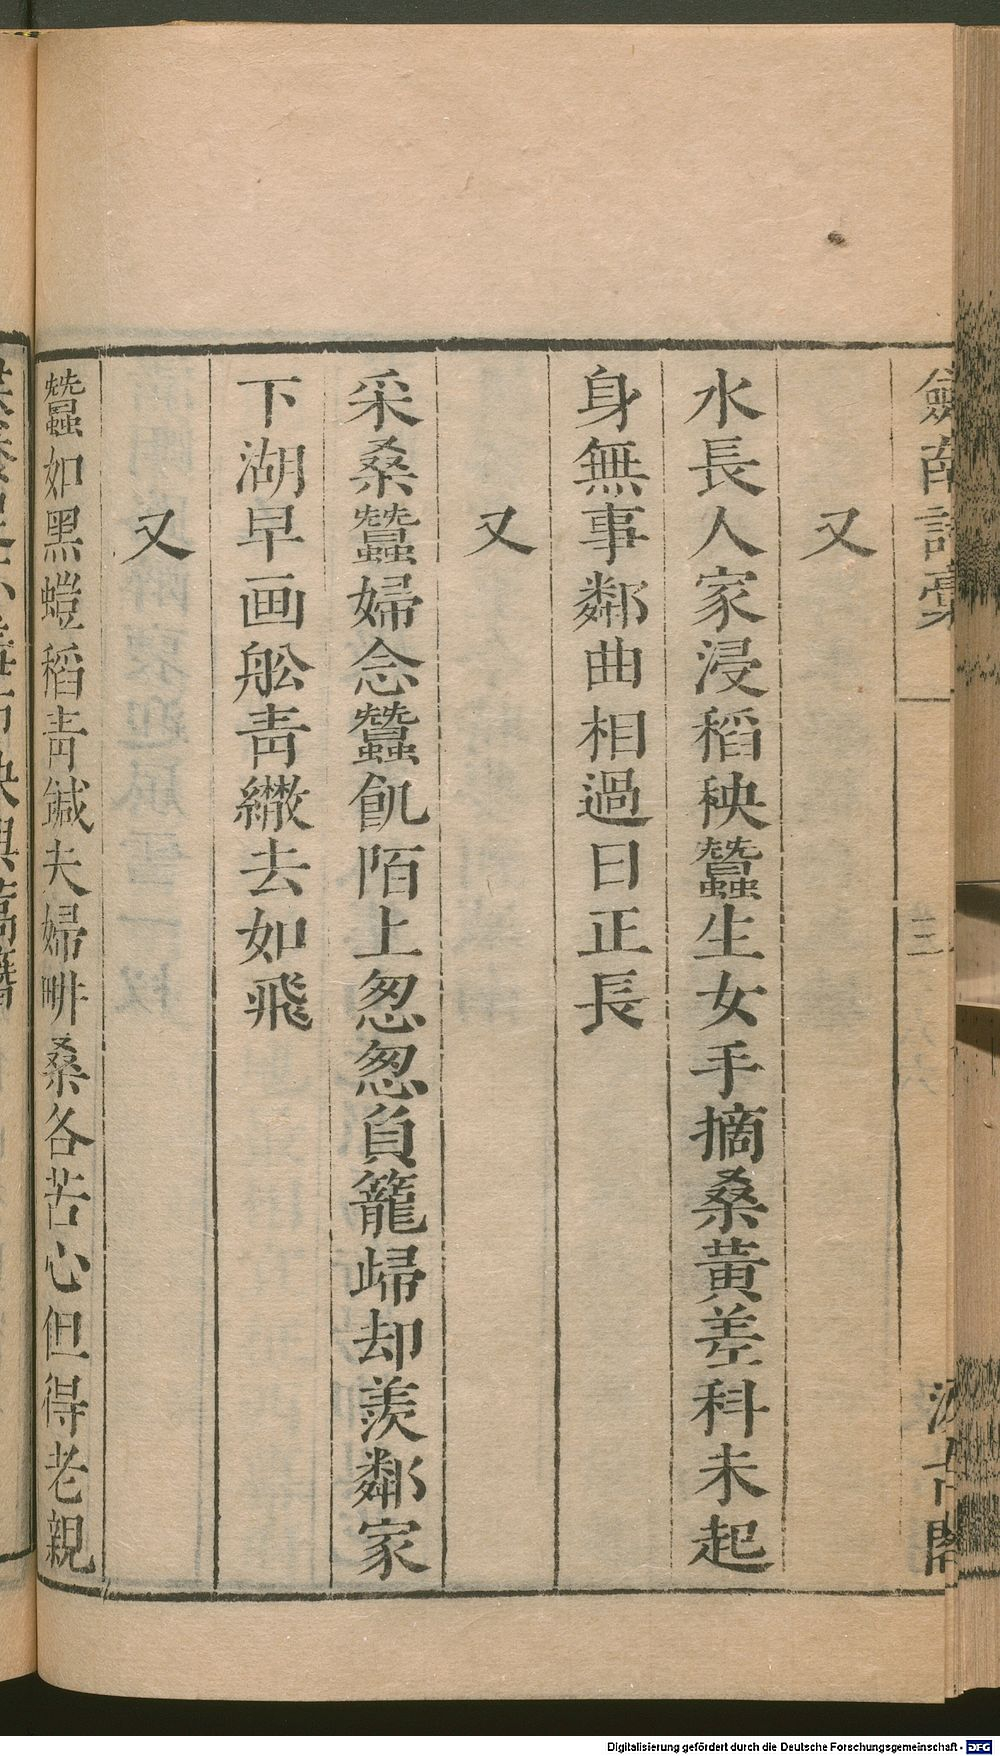 劒南詩稾
三
汲古閣
又
水長人家浸稻秧蠶生女手摘桑黃差科未起
身無事鄰曲相過日正長
又
采桑蠶婦念蠶飢陌上怱怱負籠歸却羨鄰家
下湖早画舩靑繖去如飛
又
蠶如黑螘稻靑鍼夫婦畊桑各苦心但得老親
Digitalisierung gefördert durch die Deutsche Forschungsgemeinschaft - DFG